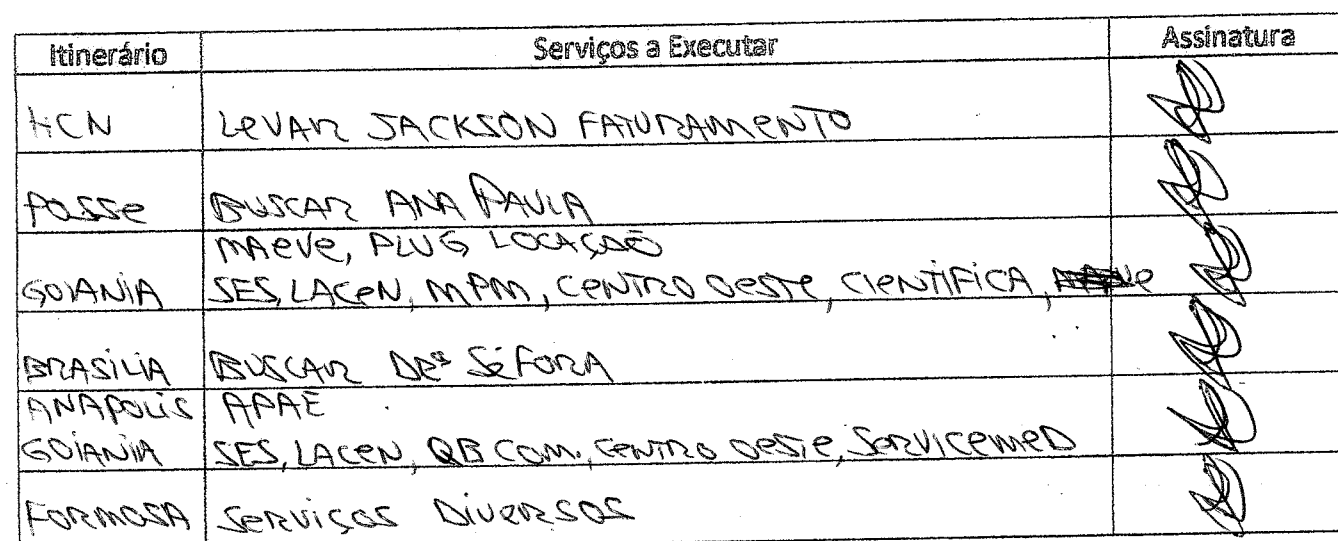 Itinerário Serviços a Executar Assinatura
HCN LEVAR JACKSON FATURAMENTO
POSSE BUSCAR ANA PAULA
MAEVE, PLUG LOCAÇÃO
GOIANIA SES, LACEN, MPM, CENTRO OESTE, CIENTÍFICA,
BRASÍLIA BUSCAR DRª SÉFORA
ANAPOLIS APAE
GOIANIA SES, LACEN, QB COM., CENTRO OESTE, SERVICEMED
FORMOSA SERVIÇOS DIVERSOS